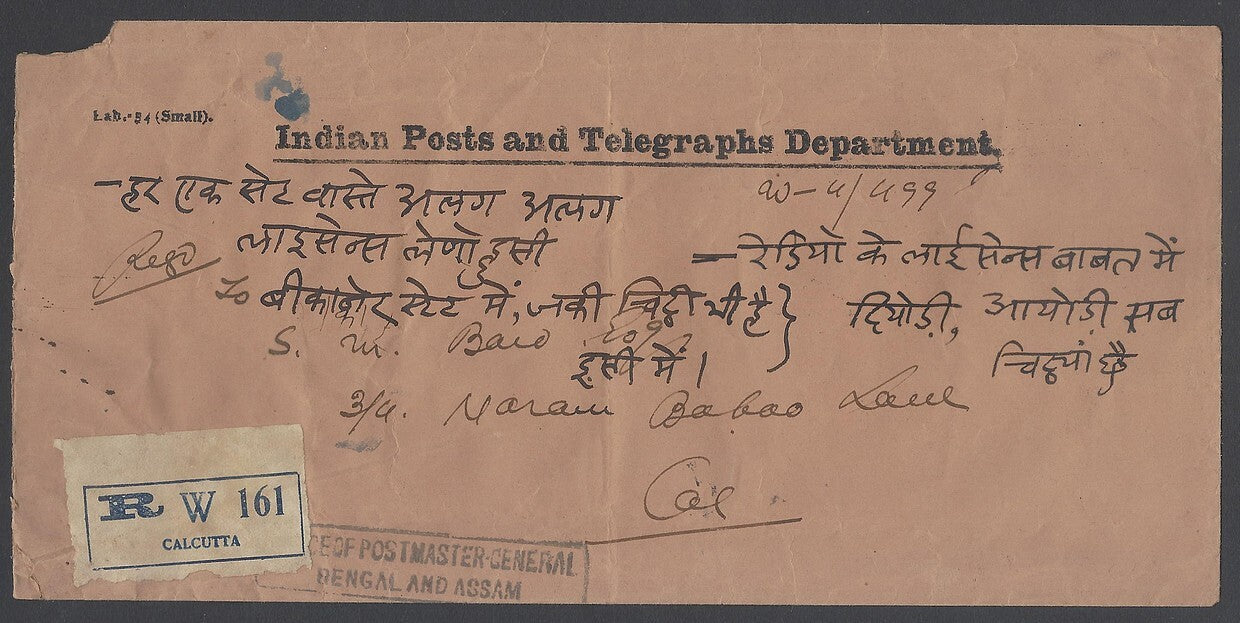 Lab.-54 (Small).
Indian Posts and Telegraphs Department.
W-4/499
—हर एक सेट वास्ते अलग अलग
लाइसेन्स लेणो हुसी
Regd
To बीकानेर स्टेट में, जकी चिट्ठी भी है}
इसी में।
—रेडियो के लाईसेन्स बाबत में
दियोड़ी, आयोड़ी सब
चिठ्यां छै
S. M.
3/4. Naram Baboo Lane
Cal
R W 161
CALCUTTA
CE OF POSTMASTER-GENERAL
BENGAL AND ASSAM